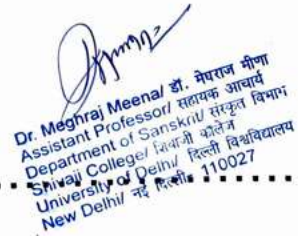 Dr. Meghraj Meena/ डॉ. मेघराज मीणा
Assistant Professor/ सहायक आचार्य
Department of Sanskrit/ संस्कृत विभाग
Shivaji College/ शिवाजी कॉलेज
University of Delhi/ दिल्ली विश्वविद्यालय
New Delhi/ नई दिल्ली 110027